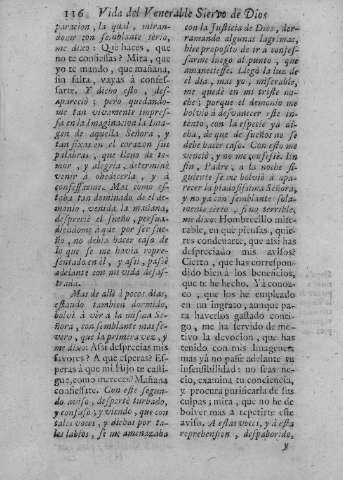 116 Vida del Venerable Siervo de Dios
paracion, la qual, miran-
dome con semblante serio,
me dixo: Què haces, que
no te confiessas? Mira, que
yo te mando, que mañana,
sin falta, vayas à confes-
sarte. Y dicho esto, des-
apareciò; pero quedando-
me tan vivamente impres-
sa en la Imaginacion la Ima-
gen de aquella Señora, y
tan fixas en el corazon sus
palabras, que lleno de te-
mor, y alegria, determinè
venir à obedecerla, y à
confessarme. Mas como es-
taba tan dominado de el de-
monio, venida la mañana,
despreciè el sueño, persua-
diendome à que por ser sue-
ño, no debia hacer caso de
lo que se me havia repre-
sentado en èl, y assi, passè
adelante con mi vida desas-
trada.
Mas de allì à pocos dias,
estando tambien dormido,
bolvì à vèr la misma Se-
ñora, con semblante mas se-
vero, que la primera vez, y
me dixo: Assi desprecias mis
favores? A què esperas? Es-
peras à que mi Hijo te casti-
gue, como mereces? Mañana
confiessate. Con este segun-
do aviso, despertè turbado,
y confuso; y viendo, que con
tales voces, y dichas por ta-
les labios, se me amenazaba
con la Justicia de Dios, der-
ramando algunas lagrimas,
hice proposito de ir à confes-
sarme luego al punto, que
amaneciesse. Llegò la luz de
el dia, mas yo, miserable,
me quedè en mi triste no-
che; porque el demonio me
bolviò à desvanecer este in-
tento, con la especie yà di-
cha, de que de sueños no se
debe hacer caso. Con esto me
venciò, y no me confessè. En
fin, Padre, à la noche si-
guiente se me bolviò à apa-
recer la piadosissima Señora,
y no yà con semblante sola-
mente serio, si no terrible,
me dixo: Hombrecillo mise-
rable, en què piensas, quie-
res condenarte, que assi has
despreciado mis avisos?
Cierto, que has correspon-
dido bien à los beneficios,
que te he hecho. Yà conoz-
co, que los he empleado
en un ingrato; aunque pa-
ra haverlos gastado conti-
go, me ha servido de mo-
tivo la devocion, que has
tenido con mis Imagenes;
mas yà no passe adelante tu
insensibilidad: no seas ne-
cio, examina tu conciencia,
y procura purificarla de sus
culpas; mira, que no he de
bolver mas à repetirte este
aviso. A estas voces, y à esta
reprehension, despavorido,
y